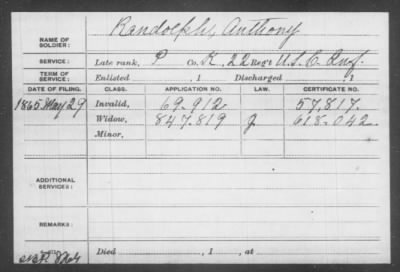 NAME OF SOLDIER: Randolph, Anthony
SERVICE: Late rank, P Co. K, 22 Reg't U.S.C. Inf.
TERM OF SERVICE: Enlisted , 1 Discharged , 1
DATE OF FILING. CLASS. APPLICATION NO. LAW. CERTIFICATE NO.
1865 May 29 Invalid, 69.912 57,817.
Widow, 847.819 618.042.
Minor,
ADDITIONAL SERVICES:
REMARKS:
Died , 1 , at